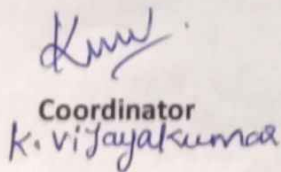 Coordinator
K. Vijayakumar